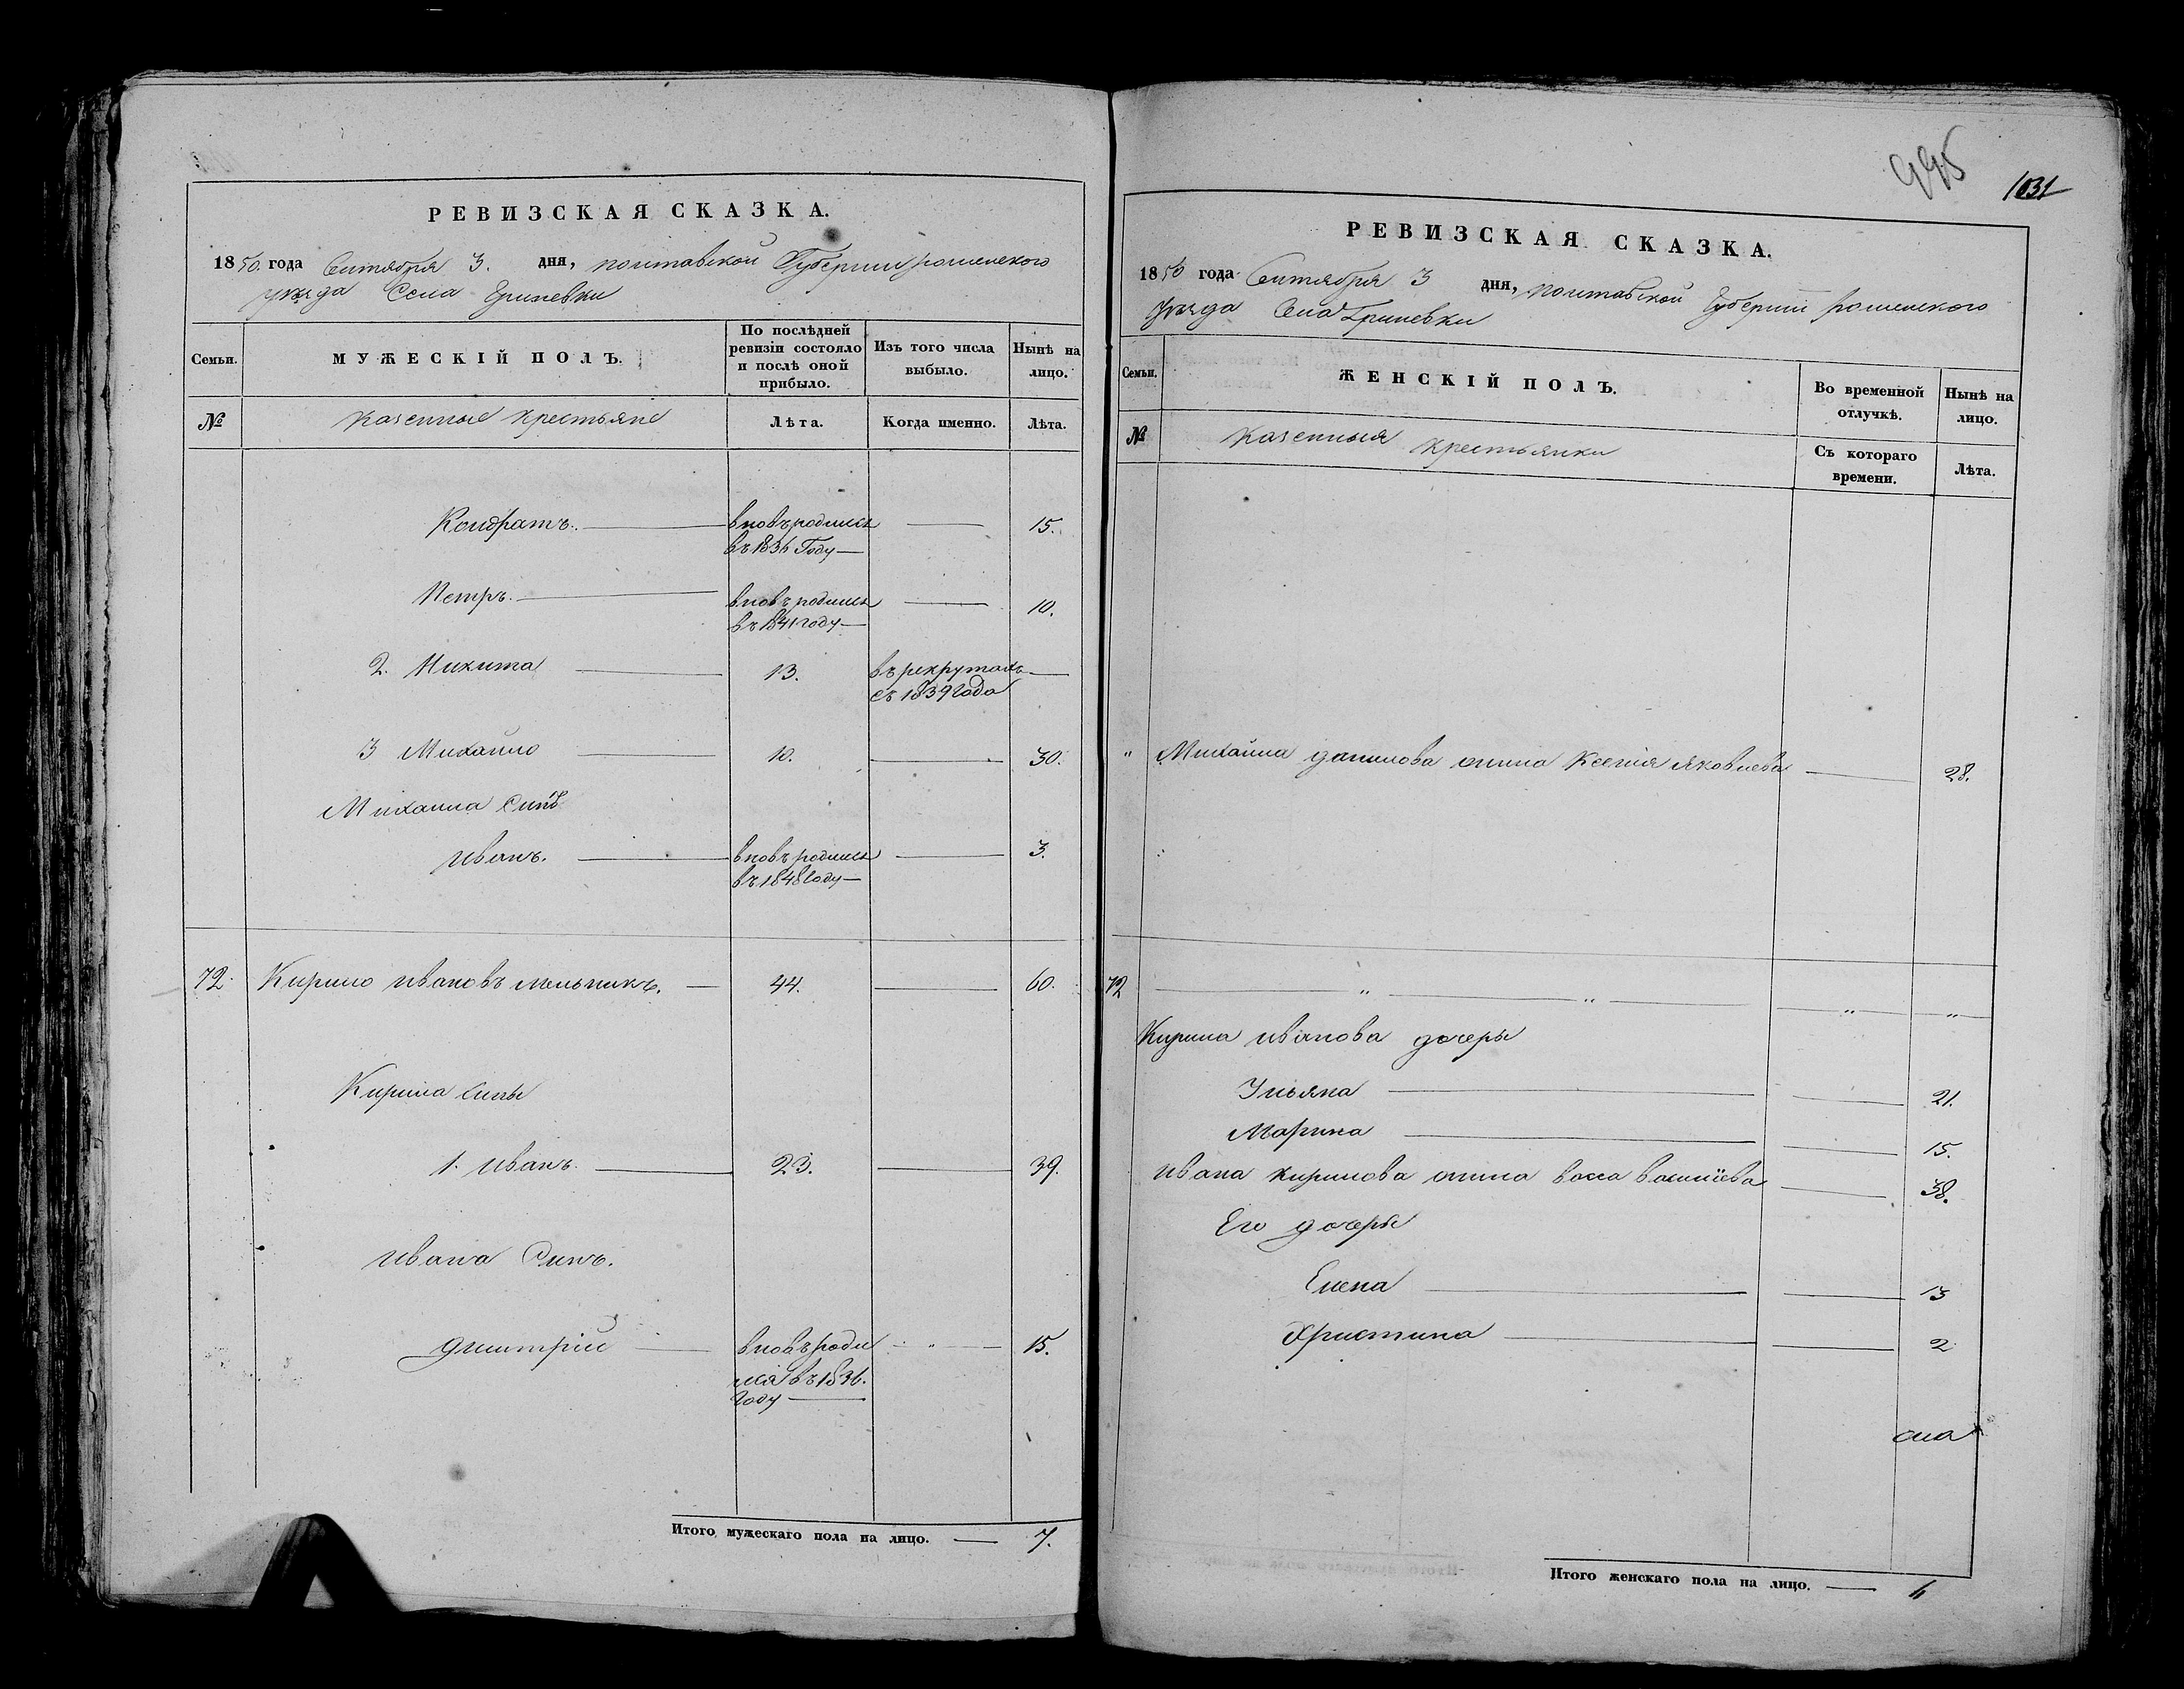 РЕВИЗСКАЯ СКАЗКА.
1850. года Сентября 3. дня, полтавской Губернии роменского
уезда Села Гриневки
Семьи. МУЖЕСКІЙ ПОЛЪ. По послѣдней ревизіи состояло и послѣ оной прибыло. Изъ того числа выбыло. Нынѣ на лицо.
№ казенные крестьяне Лѣта. Когда именно. Лѣта.
Кондратъ. вновь родился 15.
въ 1836 Году
Петръ. вновь родился 10.
въ 1841 году
2. Никита 13. въ рекрутахъ
съ 1839 года
3 Михайло 10. 30.
Михаила Синъ
иванъ. вновь родился 3.
въ 1848 Году
72. Кирило ивановъ мельникъ. 44. 60.
Кирила сины
1. иванъ. 23. 39.
ивана Синъ.
дмитрій вновь роди " 15.
лся въ 1836.
Году
Итого мужескаго пола на лицо. 7.
995
1031
РЕВИЗСКАЯ СКАЗКА.
1850 года Сентября 3 дня, полтавской Губернии роменского
уезда Села Гриневки
Семьи. ЖЕНСКІЙ ПОЛЪ. Во временной отлучкѣ. Нынѣ на лицо.
№ казенныя крестьянки Съ котораго времени. Лѣта.
" Михаила данилова жина Ксенія яковлева 28.
72 " " " "
Кирила иванова дочеры
Ульяна 21.
Марина 15.
ивана кирилова жина васса василіева 38.
Его дочеры
Елена 13
Христина 2
Итого женскаго пола на лицо. 6